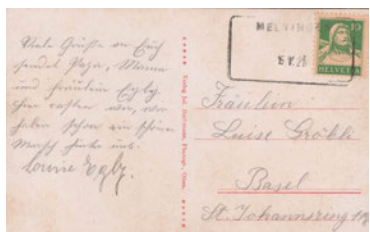 Viele Grüße an Euch
sendet Papa, Mama
und Fräulein Egly.
Hier rasten wir, wir
haben schon ein schönes
Marsch hinter uns.
Louise Egly.
MELTING
HELVETIA
Fräulein
Luise Gröbli
Basel
St. Johannsring